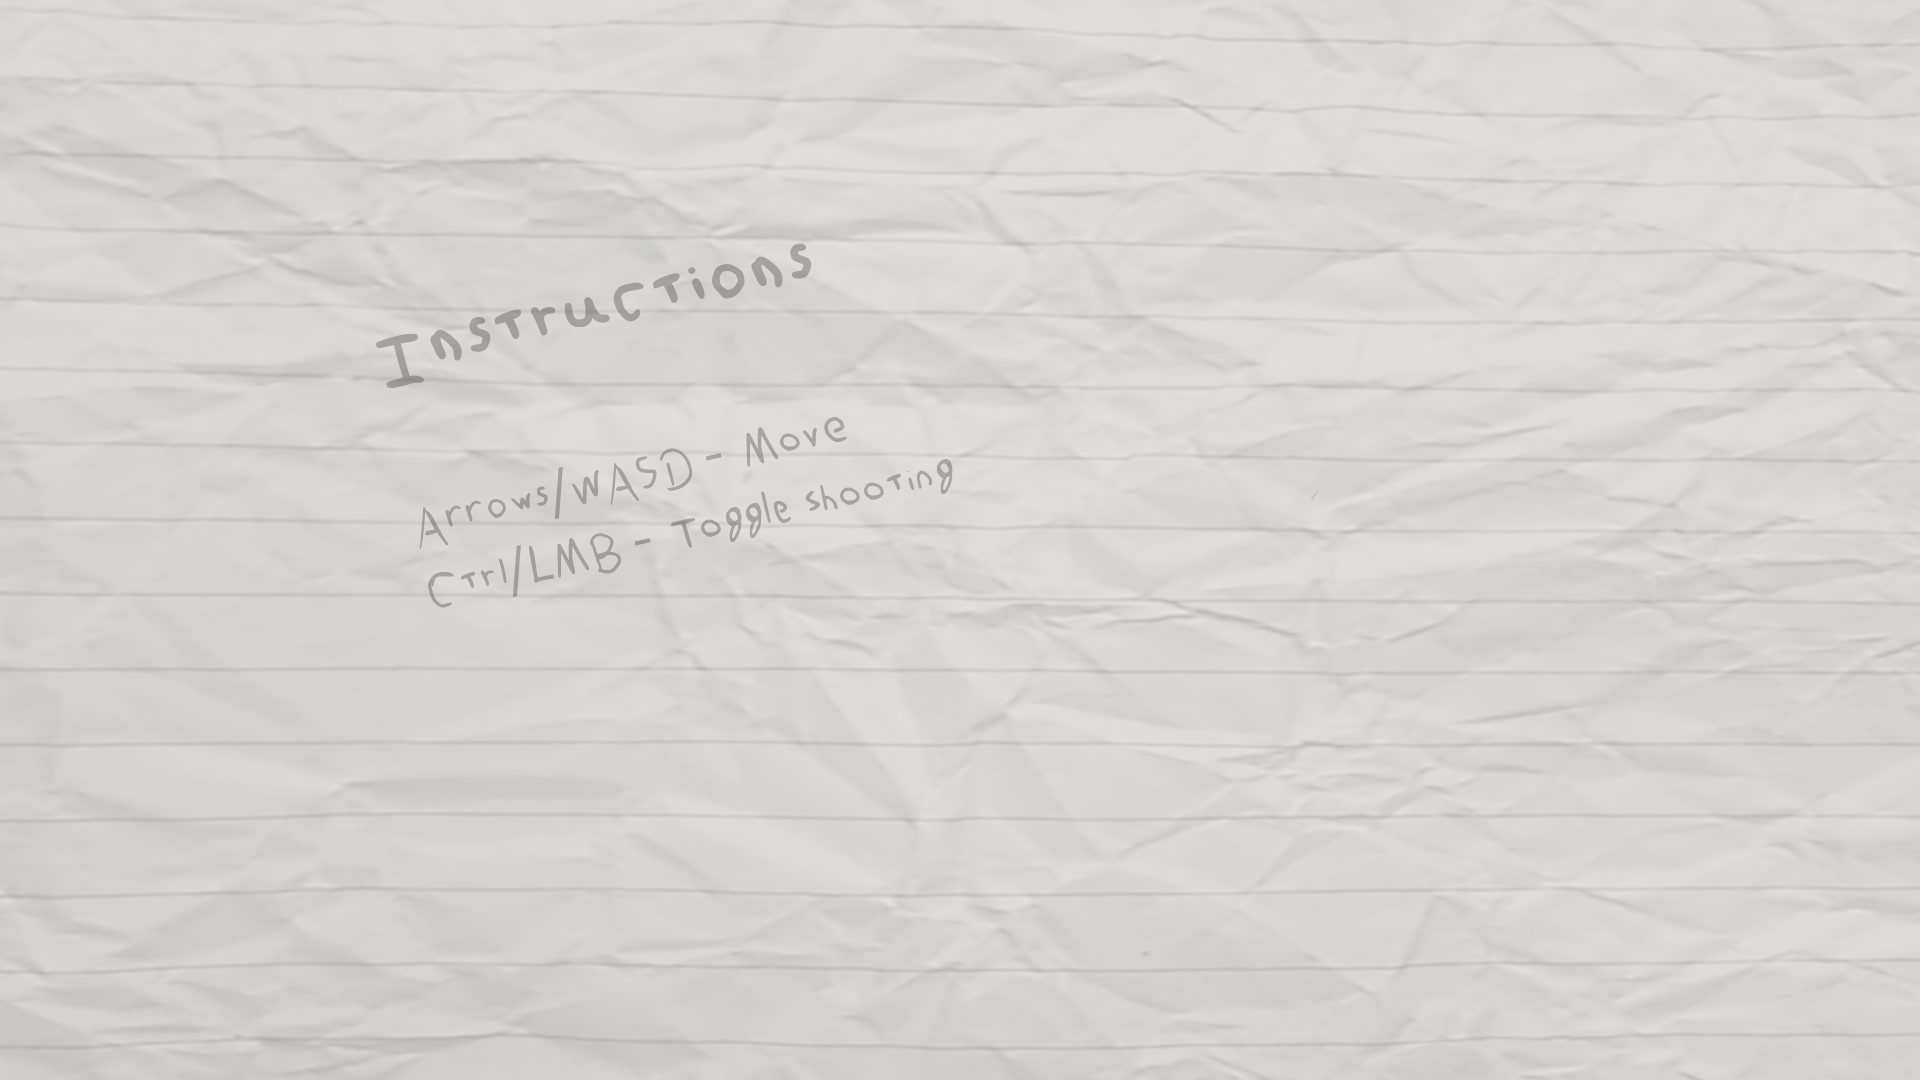 Instructions
Arrows/WASD - Move
Ctrl/LMB - Toggle shooting